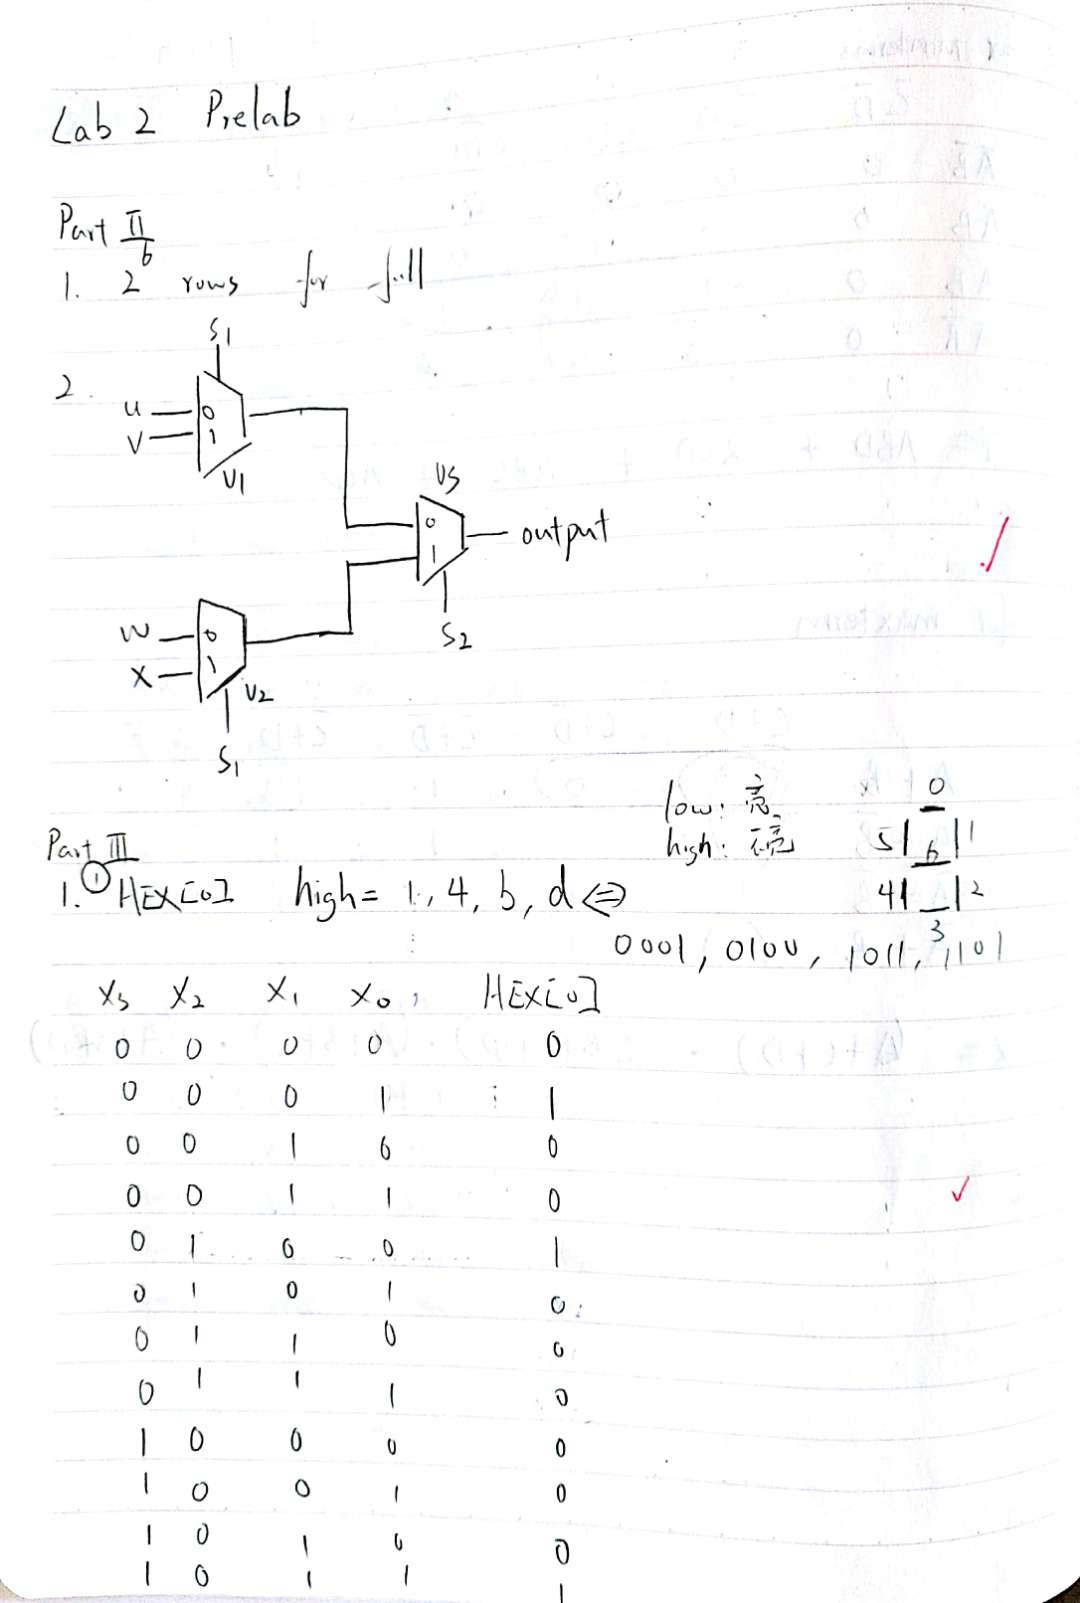 Lab 2 Prelab
Part II
1. 2^6 rows for full
S1
2.
u 0
V 1
U1
U3
0
1
output
S2
W 0
X 1
U2
S1
low: 亮
high: 不亮
0
5 1
6
4 2
3
Part III
1. ① HEX[0] high = 1, 4, b, d ⇔
0001, 0100, 1011, 1101
X3 X2 X1 X0 HEX[0]
0 0 0 0 0
0 0 0 1 1
0 0 1 0 0
0 0 1 1 0
0 1 0 0 1
0 1 0 1 0
0 1 1 0 0
0 1 1 1 0
1 0 0 0 0
1 0 0 1 0
1 0 1 0 0
1 0 1 1 1